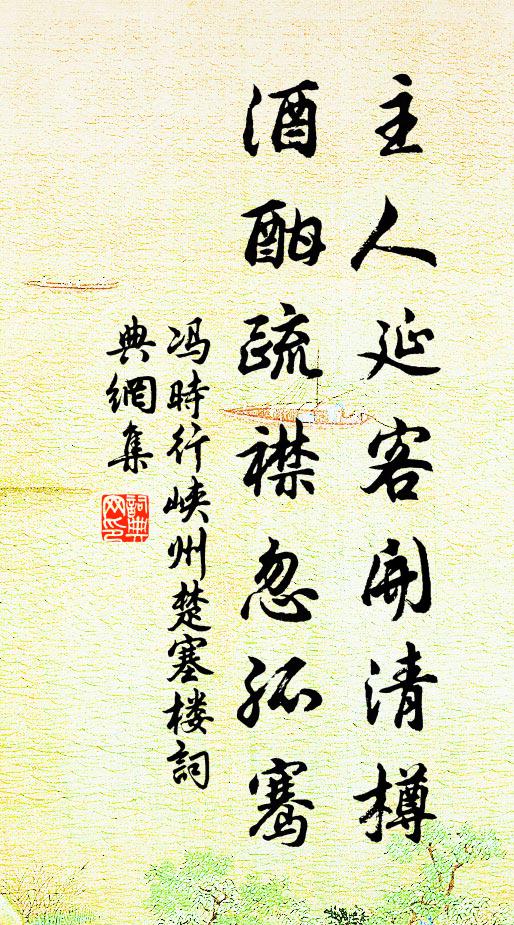 主人延客開清樽
酒酣疏襟忽孤騫
冯時行峡州楚塞楼詞
典網集
詞典网印